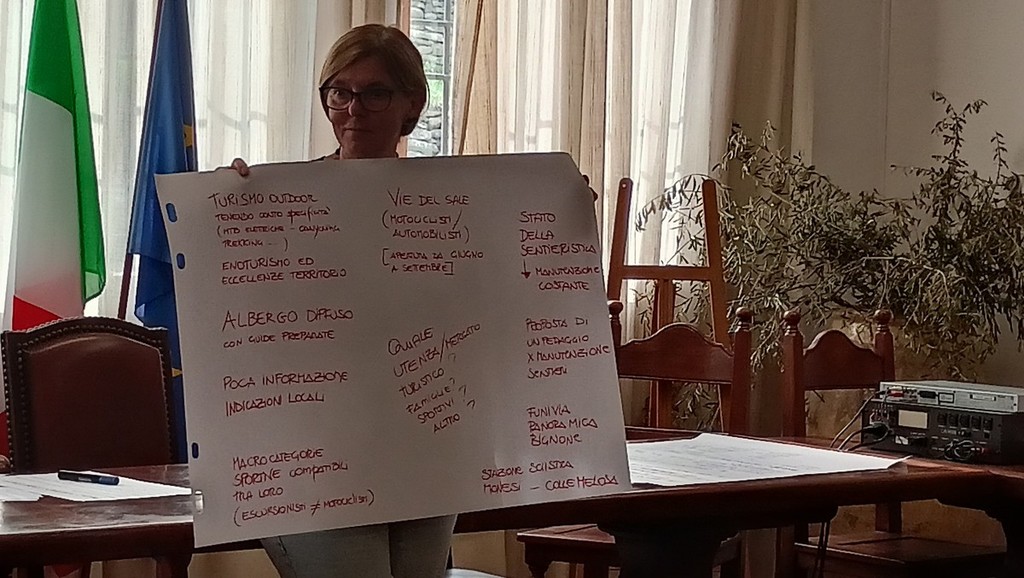 TURISMO OUTDOOR
TENENDO CONTO SPECIFICITÀ
(MTB ELETTRICHE - CANYONING
TREKKING - ...)
ENOTURISMO ED
ECCELLENZE TERRITORIO
ALBERGO DIFUSO
CON GUIDE PREPARATE
POCA INFORMAZIONE
INDICAZIONI LOCALI
MACROCATEGORIE
SPORTIVE COMPATIBILI
TRA LORO
(ESCURSIONISTI ≠ MOTOCICLISTI)
VIE DEL SALE
(MOTOCICLISTI/
AUTOMOBILISTI)
[APERTURA DA GIUGNO
A SETTEMBRE]
QUALE
UTENZA/MERCATO
TURISTICO ?
FAMIGLIE?
SPORTIVI ?
ALTRO ?
STATO
DELLA
SENTIERISTICA
↓ MANUTENZIONE
COSTANTE
PROPOSTA DI
UN PEDAGGIO
X MANUTENZIONE
SENTIERI
FUNIVIA
PANORAMICA
BIGNONE
STAZIONE SCIISTICA
MONESI - COLLE MELOSA